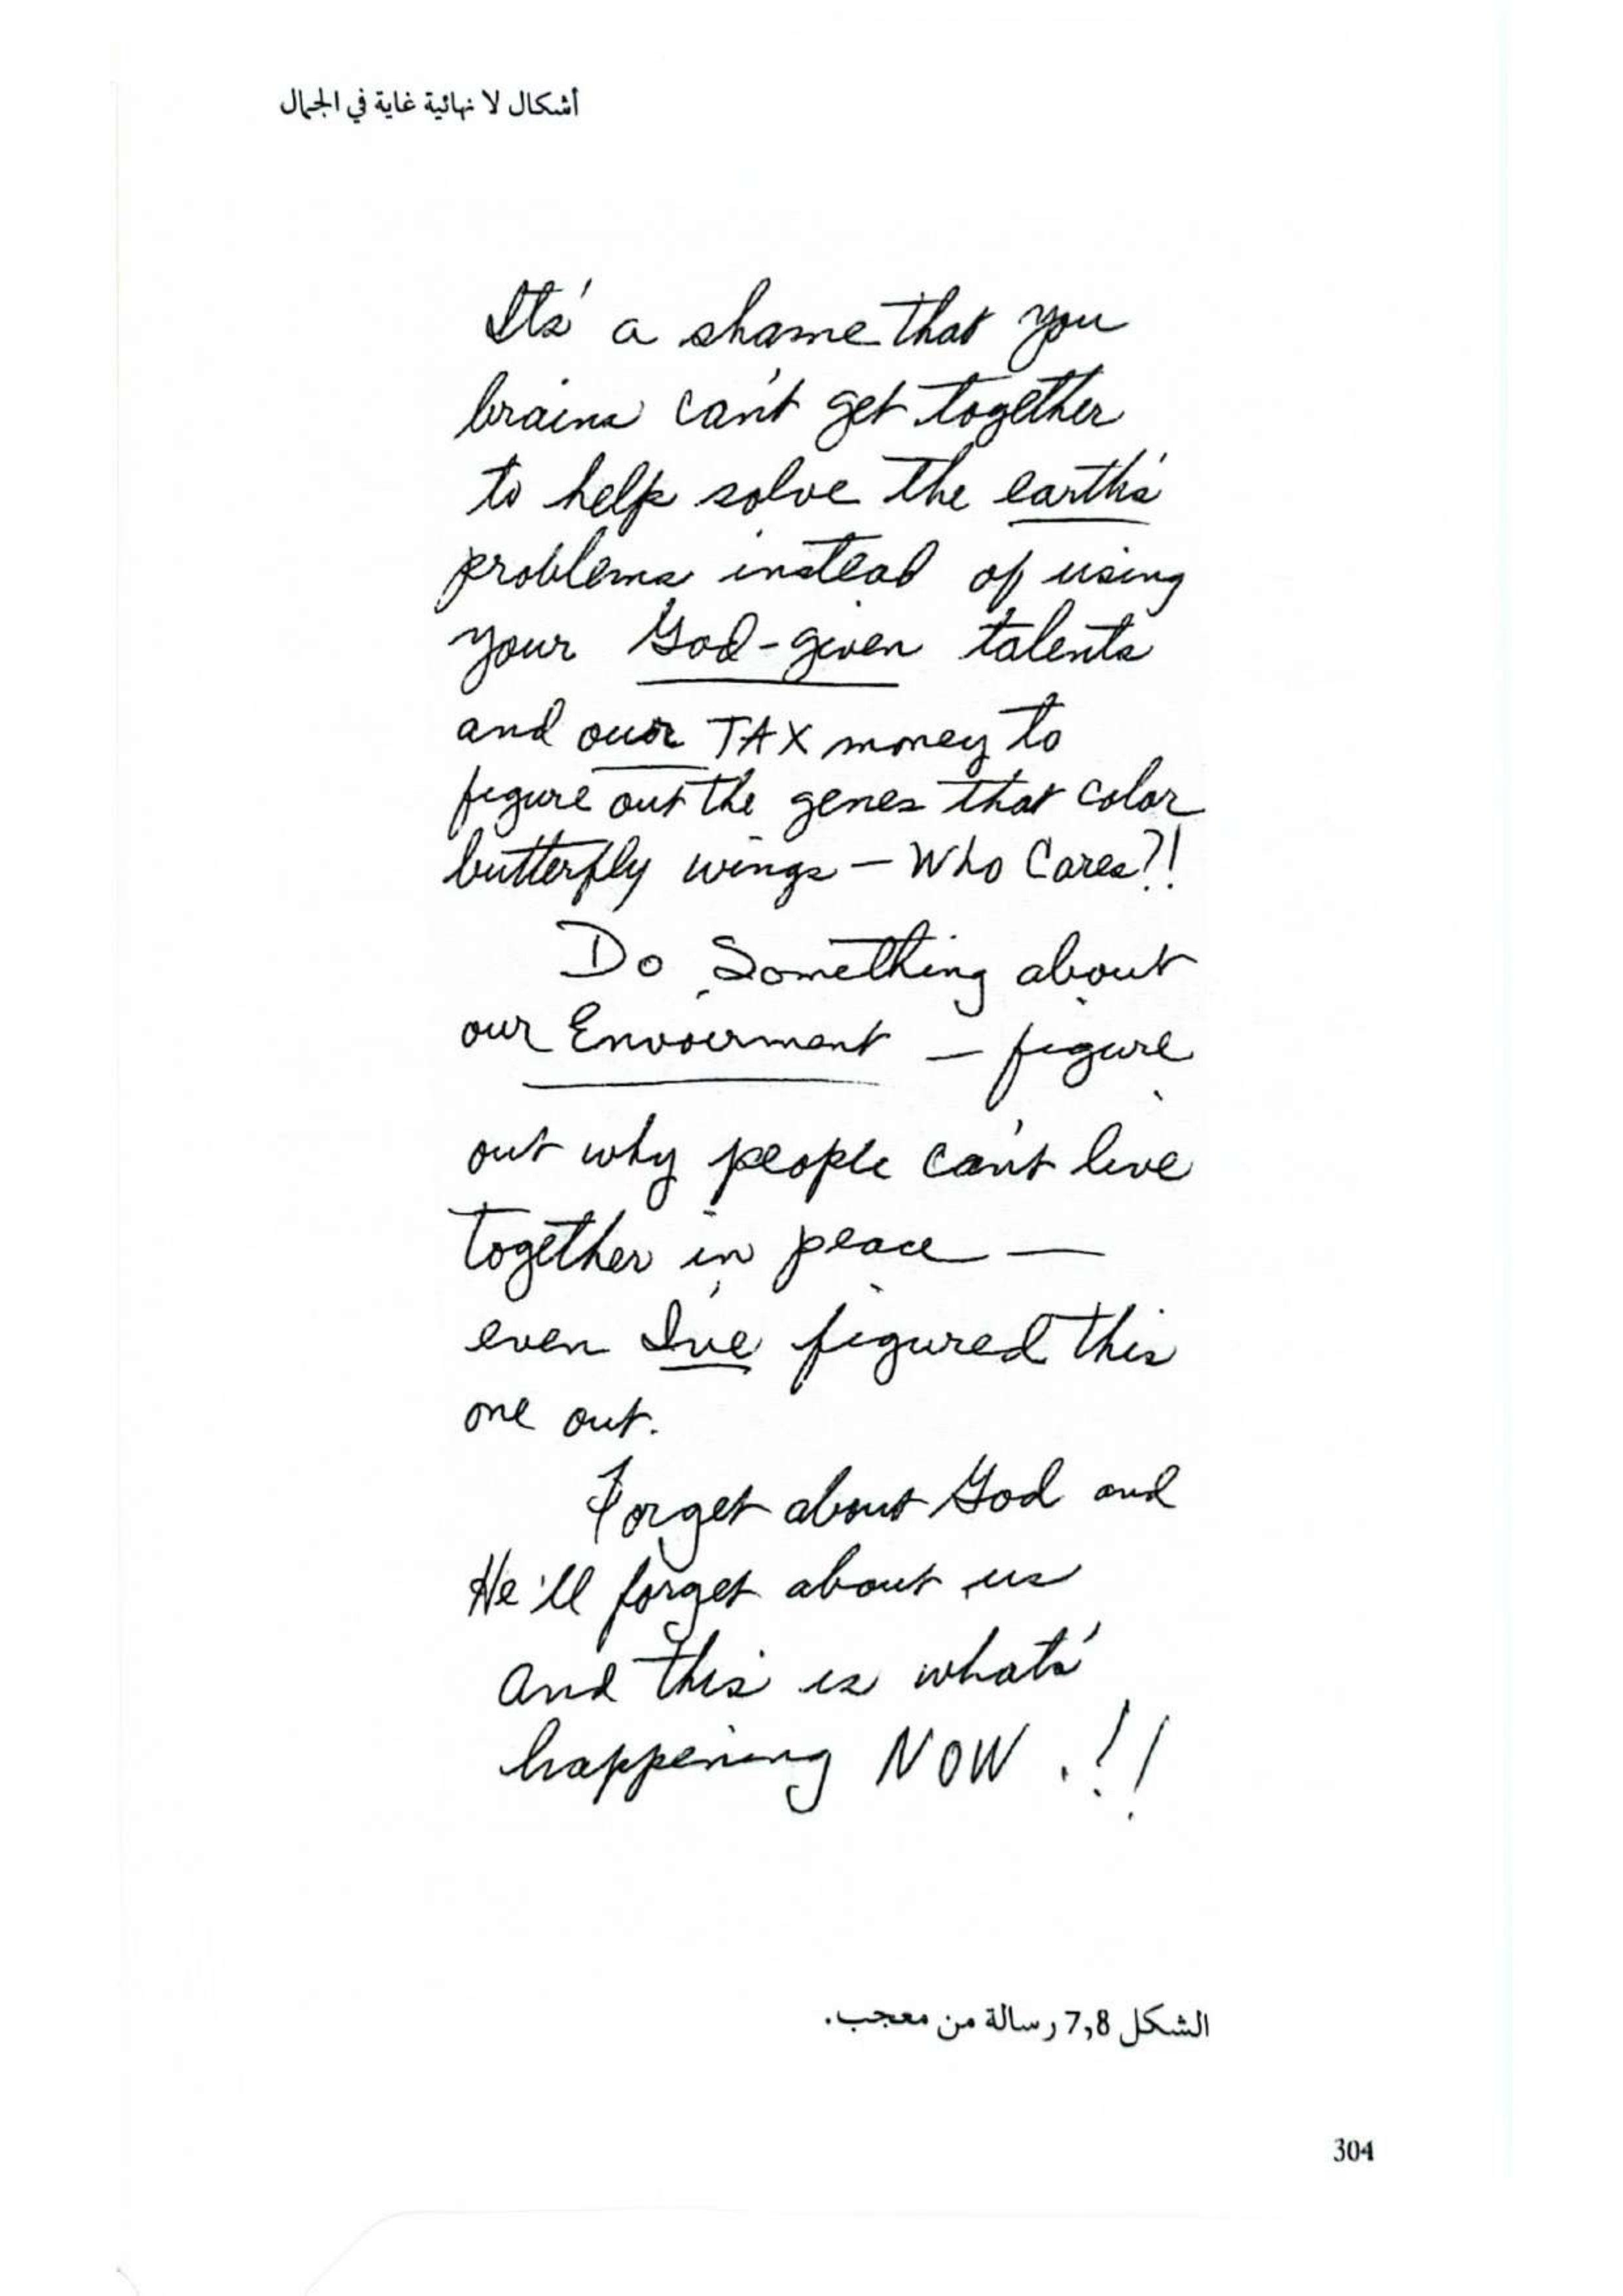 أشكال لا نهائية غاية في الجمال
Its' a shame that you
brains can't get together
to help solve the earth's
problems instead of using
your God-given talents
and our TAX money to
figure out the genes that color
butterfly wings — Who Cares?!
Do Something about
our Envoirment — figure
out why people can't live
together in peace —
even I've figured this
one out.
Forget about God and
He'll forget about us
and this is whats'
happening NOW .!!
الشكل 7,8 رسالة من معجب.
304